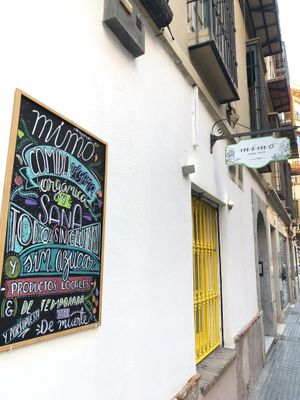 mimo
COMIDA
orgánica
SANA
TODO SIN GLUTEN
Y sin azúcar
PRODUCTOS LOCALES
& DE TEMPORADA
Y POR SUPUESTO
De muerte
mimo